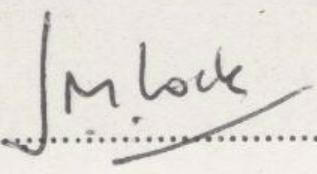 J M. Lock